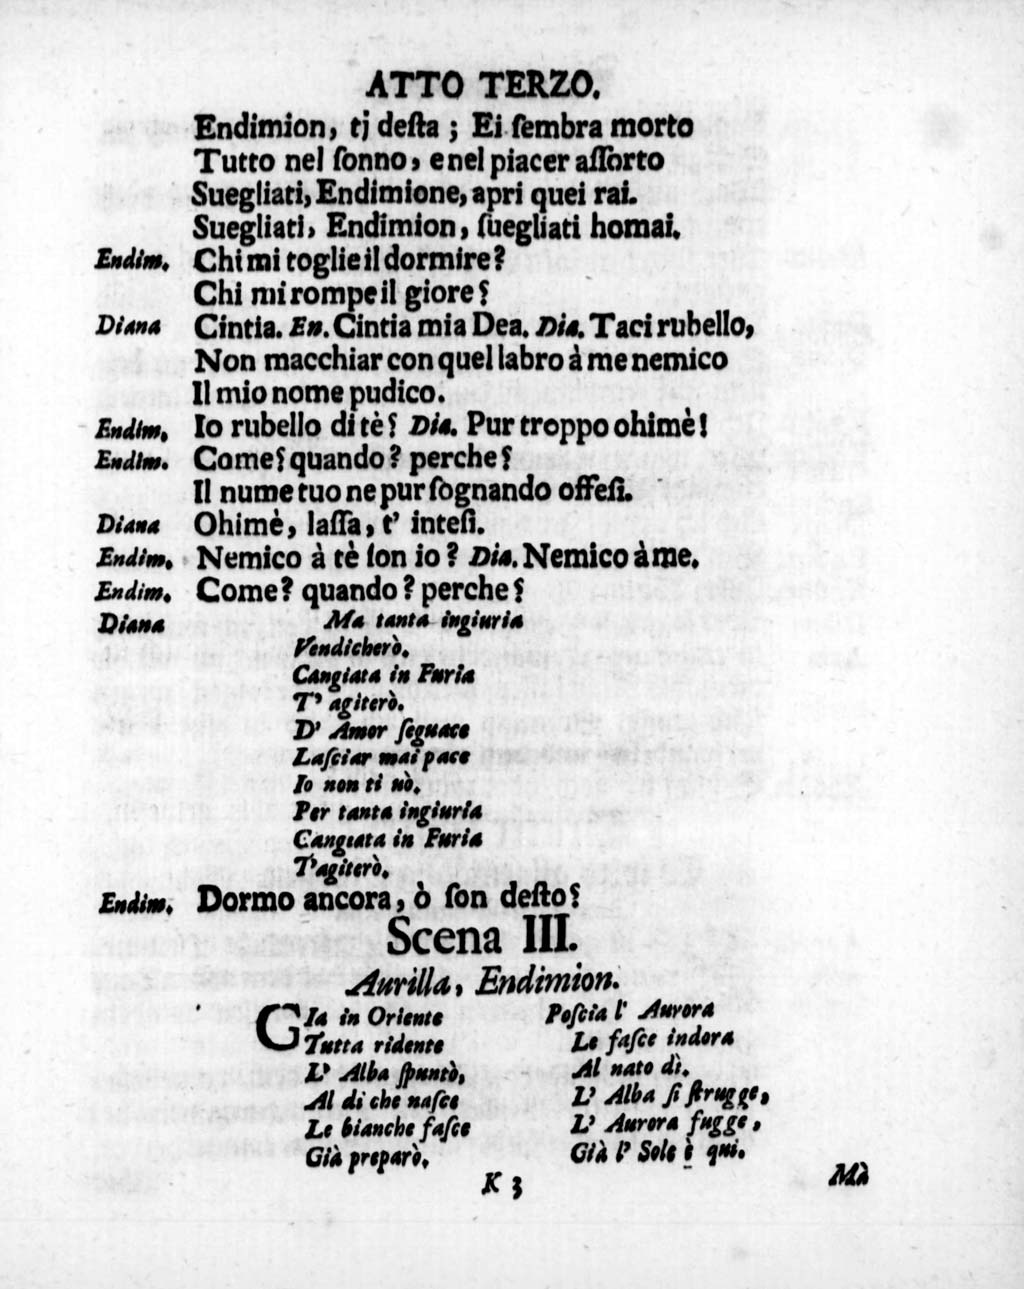 ATTO TERZO.
Endimion, tj desta ; Ei sembra morto
Tutto nel sonno, e nel piacer assorto
Suegliati, Endimione, apri quei rai.
Suegliati, Endimion, suegliati homai.
Endim. Chi mi toglie il dormire?
Chi mi rompe il giore?
Diana Cintia. En. Cintia mia Dea. Dia. Taci rubello,
Non macchiar con quel labro à me nemico
Il mio nome pudico.
Endim. Io rubello di tè? Dia. Pur troppo ohimè!
Endim. Come? quando? perche?
Il nume tuo ne pur sognando offesi.
Diana Ohimè, lassa, t' intesi.
Endim. Nemico à tè son io? Dia. Nemico à me.
Endim. Come? quando? perche?
Diana Ma tanta ingiuria
Vendicherò.
Cangiata in Furia
T' agiterò.
D' Amor seguace
Lasciar mai pace
Io non ti nò.
Per tanta ingiuria
Cangiata in Furia
T'agiterò.
Endim. Dormo ancora, ò son desto?
Scena III.
Aurilla, Endimion.
GIa in Oriente
Tutta ridente
L' Alba spuntò,
Al di che nasce
Le bianche fasce
Già preparò.
Poscia l' Aurora
Le fasce indora
Al nato dì.
L' Alba si strugge,
L' Aurora fugge,
Già l' Sole è qui.
K 3
Mà